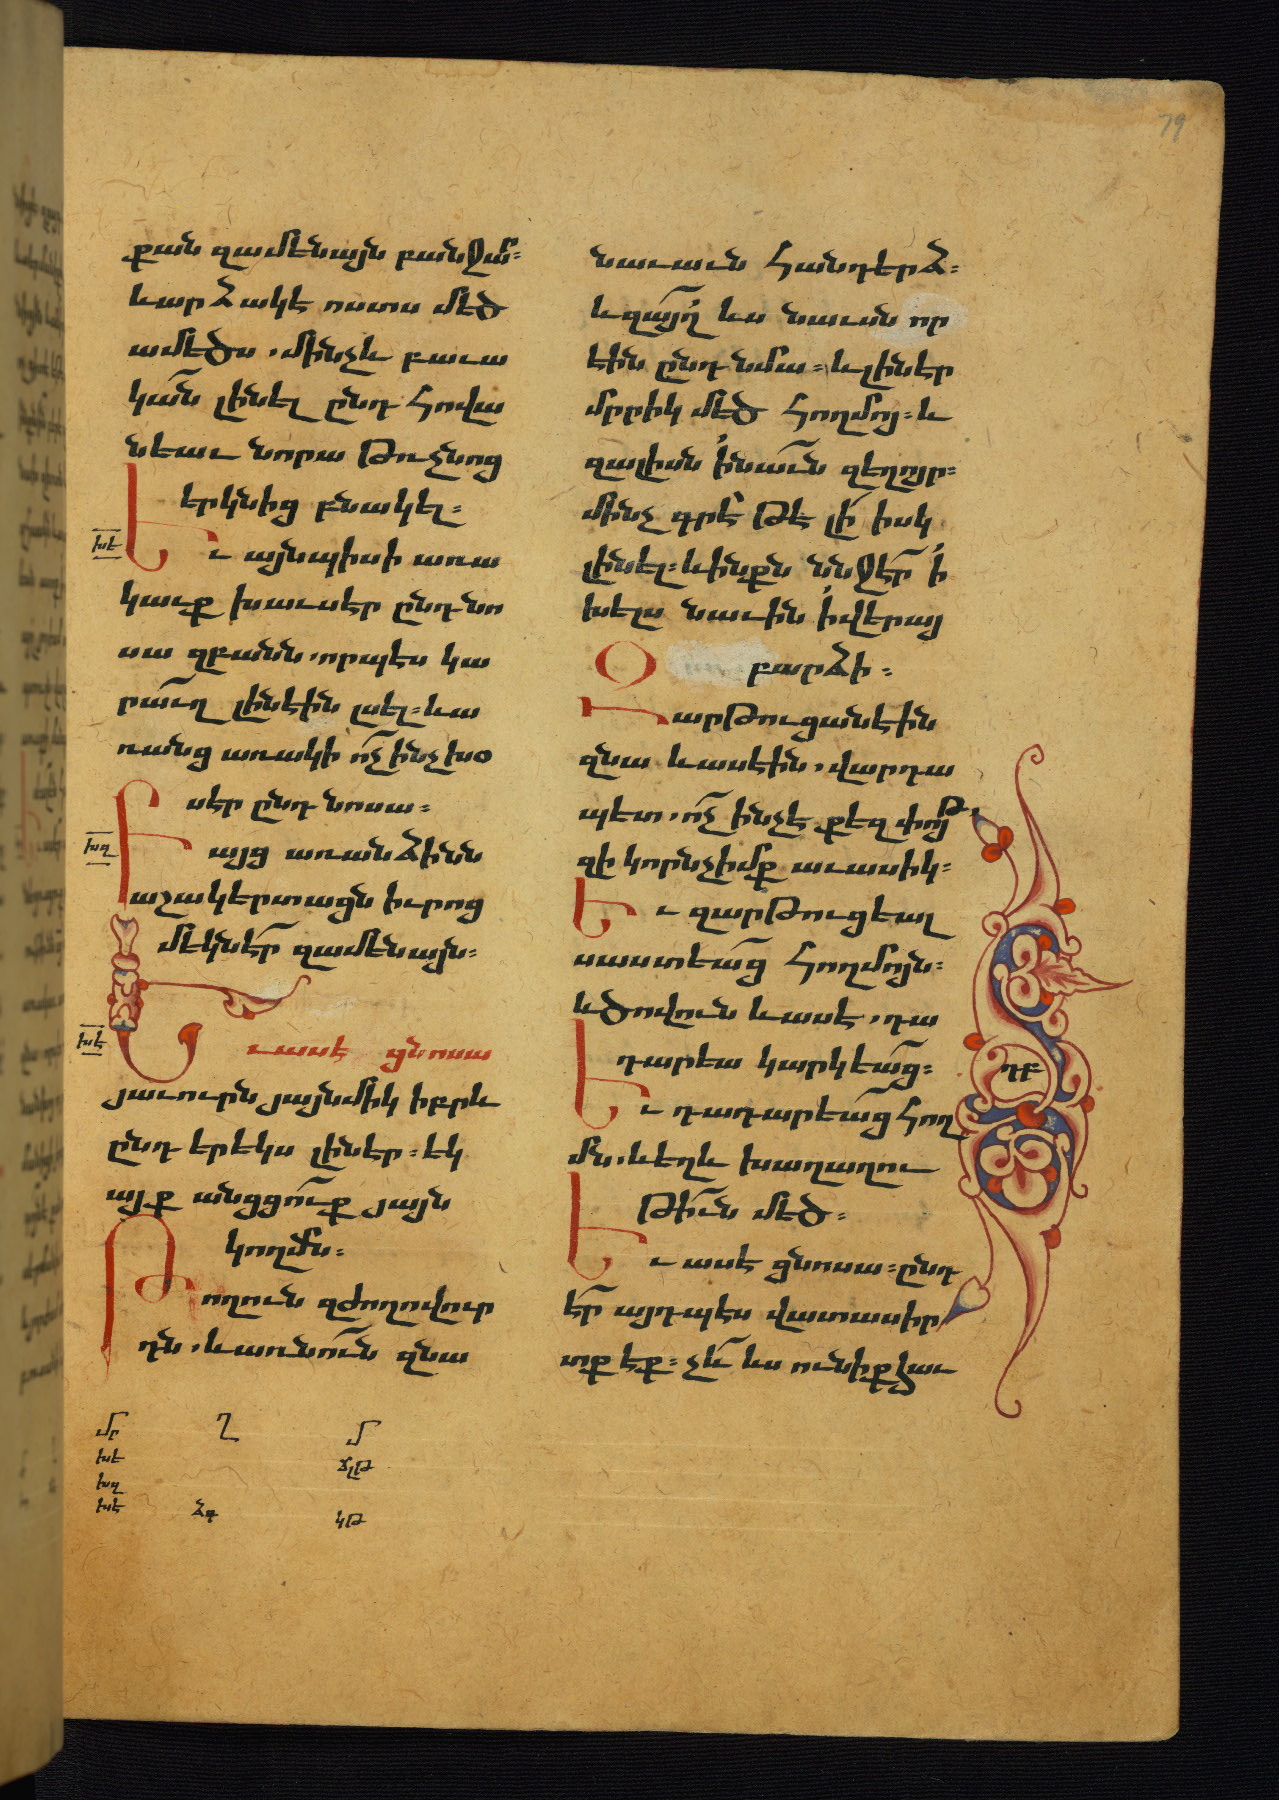 79
քան զամենայն բանջա՟ր։
և արձակէ ոստս մեծ
ամեծս, մինչև բաւա
կա՟ն լինել ընդ հովա
նեաւ նորա թռչնոց
երկնից բնակել։
խե
Եւ այնպիսի առա
կաւք խաւսէր ընդ նո
սա զբանն, որպէս կա
րա՟ւղ լինէին լսել։ և ա
ռանց առակի ո՟չ ինչ խօ
սէր ընդ նոսա։
խզ
Բայց առանձինն
աշակերտացն իւրոց
մեկնէ՟ր զամենայն։
խէ
Եւ ասէ ցնոսա
յաւուրն յայնմիկ իբրև
ընդ երեկս լինէր։ եկ
այք անցցո՟ւք յայն
կողմն։
Թողուն զժողովուր
դն, և առնո՟ւն զնա
նաւաւն հանդերձ։
և զա՟յլ ևս նաւսն որ
էին ընդ նմա։ և լինէր
մրրիկ մեծ հողմոյ։ և
զալիսն ի նա՟ւն զեղոյր։
մինչ գրե՟ թէ լի՟ իսկ
լինել։ և ինքն ննջէ՟ր ի
խելս նաւին ի վերայ
բարձի։
Զարթուցանեին
զնա և ասէին, վարդա
պետ, ո՟չ ինչ է քեզ փոյթ
զի կորնչիմք աւասիկ։
Եւ զարթուցեալ
սաստեա՟ց հողմոյն։
և ծովուն և ասէ, դա
դարեա կարկեա՟ց։
Եւ դադարեա՟ց հող
մն, և եղև խաղաղու
թի՟ւն մեծ։
Եւ ասէ ցնոսա։ ընդ
է՟ր այդպէս վատասիր
տք էք։ չև՟ ևս ունիք հաւ
դբ
մր
խե
խզ
խէ
ղ
ձգ
մ
ճլթ
կթ